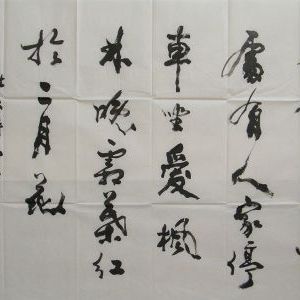 處有人家停
車坐愛楓
林晚霜葉紅
於二月花